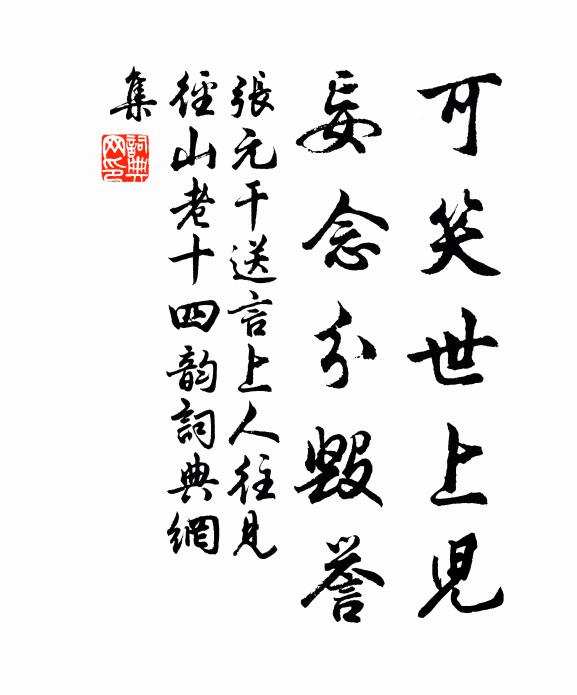 可笑世上兒
妄念分毀譽
張元干送言上人往見
徑山老十四韵詞典網
集
詞典網印